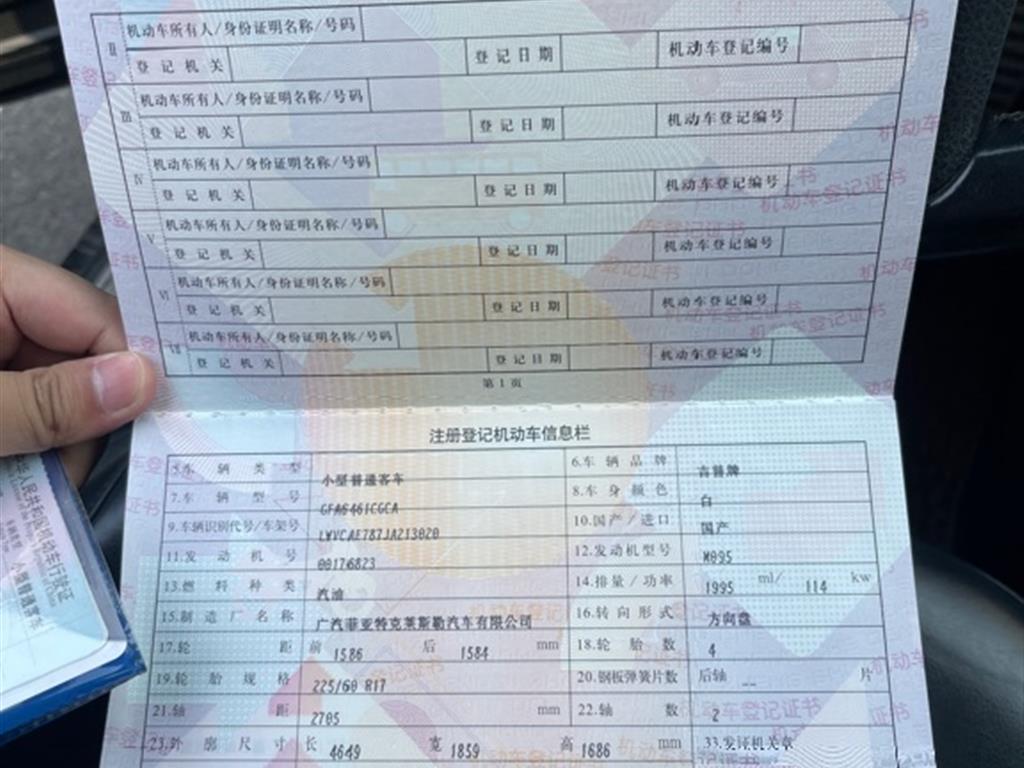 II 机动车所有人/身份证明名称/号码
登记机关 登记日期 机动车登记编号
III 机动车所有人/身份证明名称/号码
登记机关 登记日期 机动车登记编号
IV 机动车所有人/身份证明名称/号码
登记机关 登记日期 机动车登记编号
V 机动车所有人/身份证明名称/号码
登记机关 登记日期 机动车登记编号
VI 机动车所有人/身份证明名称/号码
登记机关 登记日期 机动车登记编号
VII 机动车所有人/身份证明名称/号码
登记机关 登记日期 机动车登记编号
第1页
注册登记机动车信息栏
5.车辆类型 小型普通客车 6.车辆品牌 吉普牌
7.车辆型号 GFA6461CGCA 8.车身颜色 白
9.车辆识别代号/车架号 LWVCAE787JA213020 10.国产/进口 国产
11.发动机号 00176823 12.发动机型号 M095
13.燃料种类 汽油 14.排量/功率 1995 ml/ 114 kw
15.制造厂名称 广汽菲亚特克莱斯勒汽车有限公司 16.转向形式 方向盘
17.轮距 前 1586 后 1584 mm 18.轮胎数 4
19.轮胎规格 225/60 R17 20.钢板弹簧片数 后轴 -- 片
21.轴距 2705 mm 22.轴数 2
23.外廓尺寸 长 4649 宽 1859 高 1686 mm 33.发证机关章
人民共和国机动车行驶证
小型普通客车